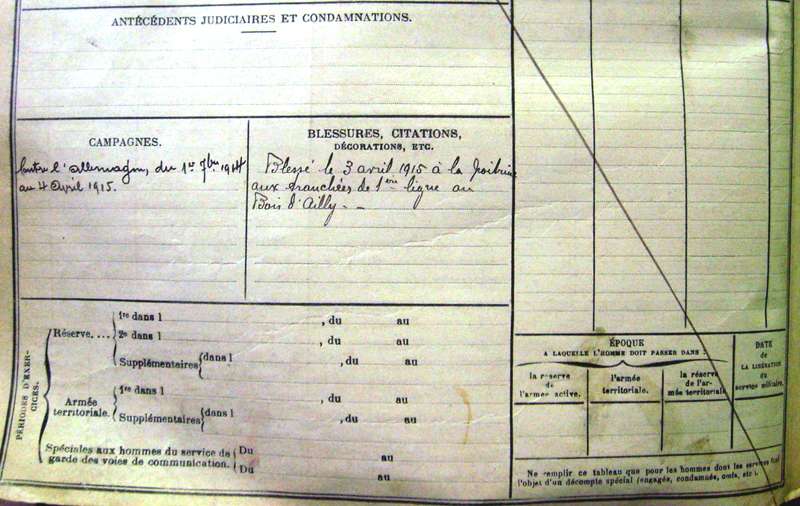 ANTÉCÉDENTS JUDICIAIRES ET CONDAMNATIONS.
CAMPAGNES.
Contre l'Allemagne, du 1er 7bre 1914
au 4 Avril 1915.
BLESSURES, CITATIONS,
DÉCORATIONS, ETC.
Blessé le 3 avril 1915 à la Poitrine
aux tranchées de 1ère ligne au
Bois d'Ailly.
PÉRIODES D'EXER-
CICES.
Réserve....
1re dans l , du au
2e dans l , du au
Supplémentaires dans l , du au
Armée
territoriale.
1re dans l , du au
Supplémentaires dans l , du au
Spéciales aux hommes du service de
garde des voies de communication.
Du au
Du au
ÉPOQUE
A LAQUELLE L'HOMME DOIT PASSER DANS :
la réserve
de
l'armée active.
l'armée
territoriale.
la réserve
de l'ar-
mée territoriale
DATE
de
LA LIBÉRATION
du
service militaire.
Ne remplir ce tableau que pour les hommes dont les services font
l'objet d'un décompte spécial (engagés, condamnés, omis, etc.).